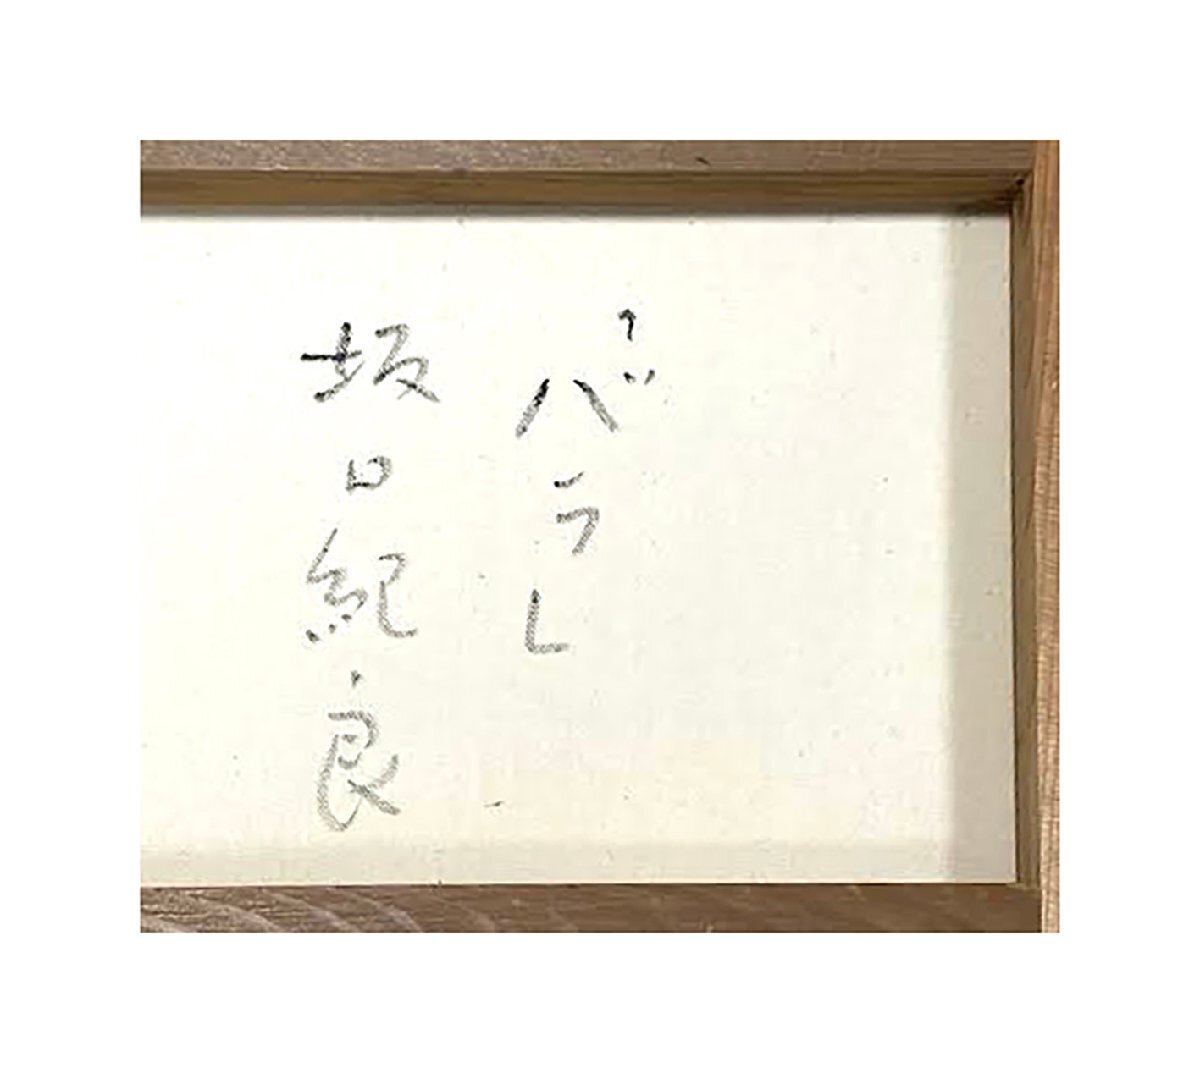 「バラ」
坂口紀良